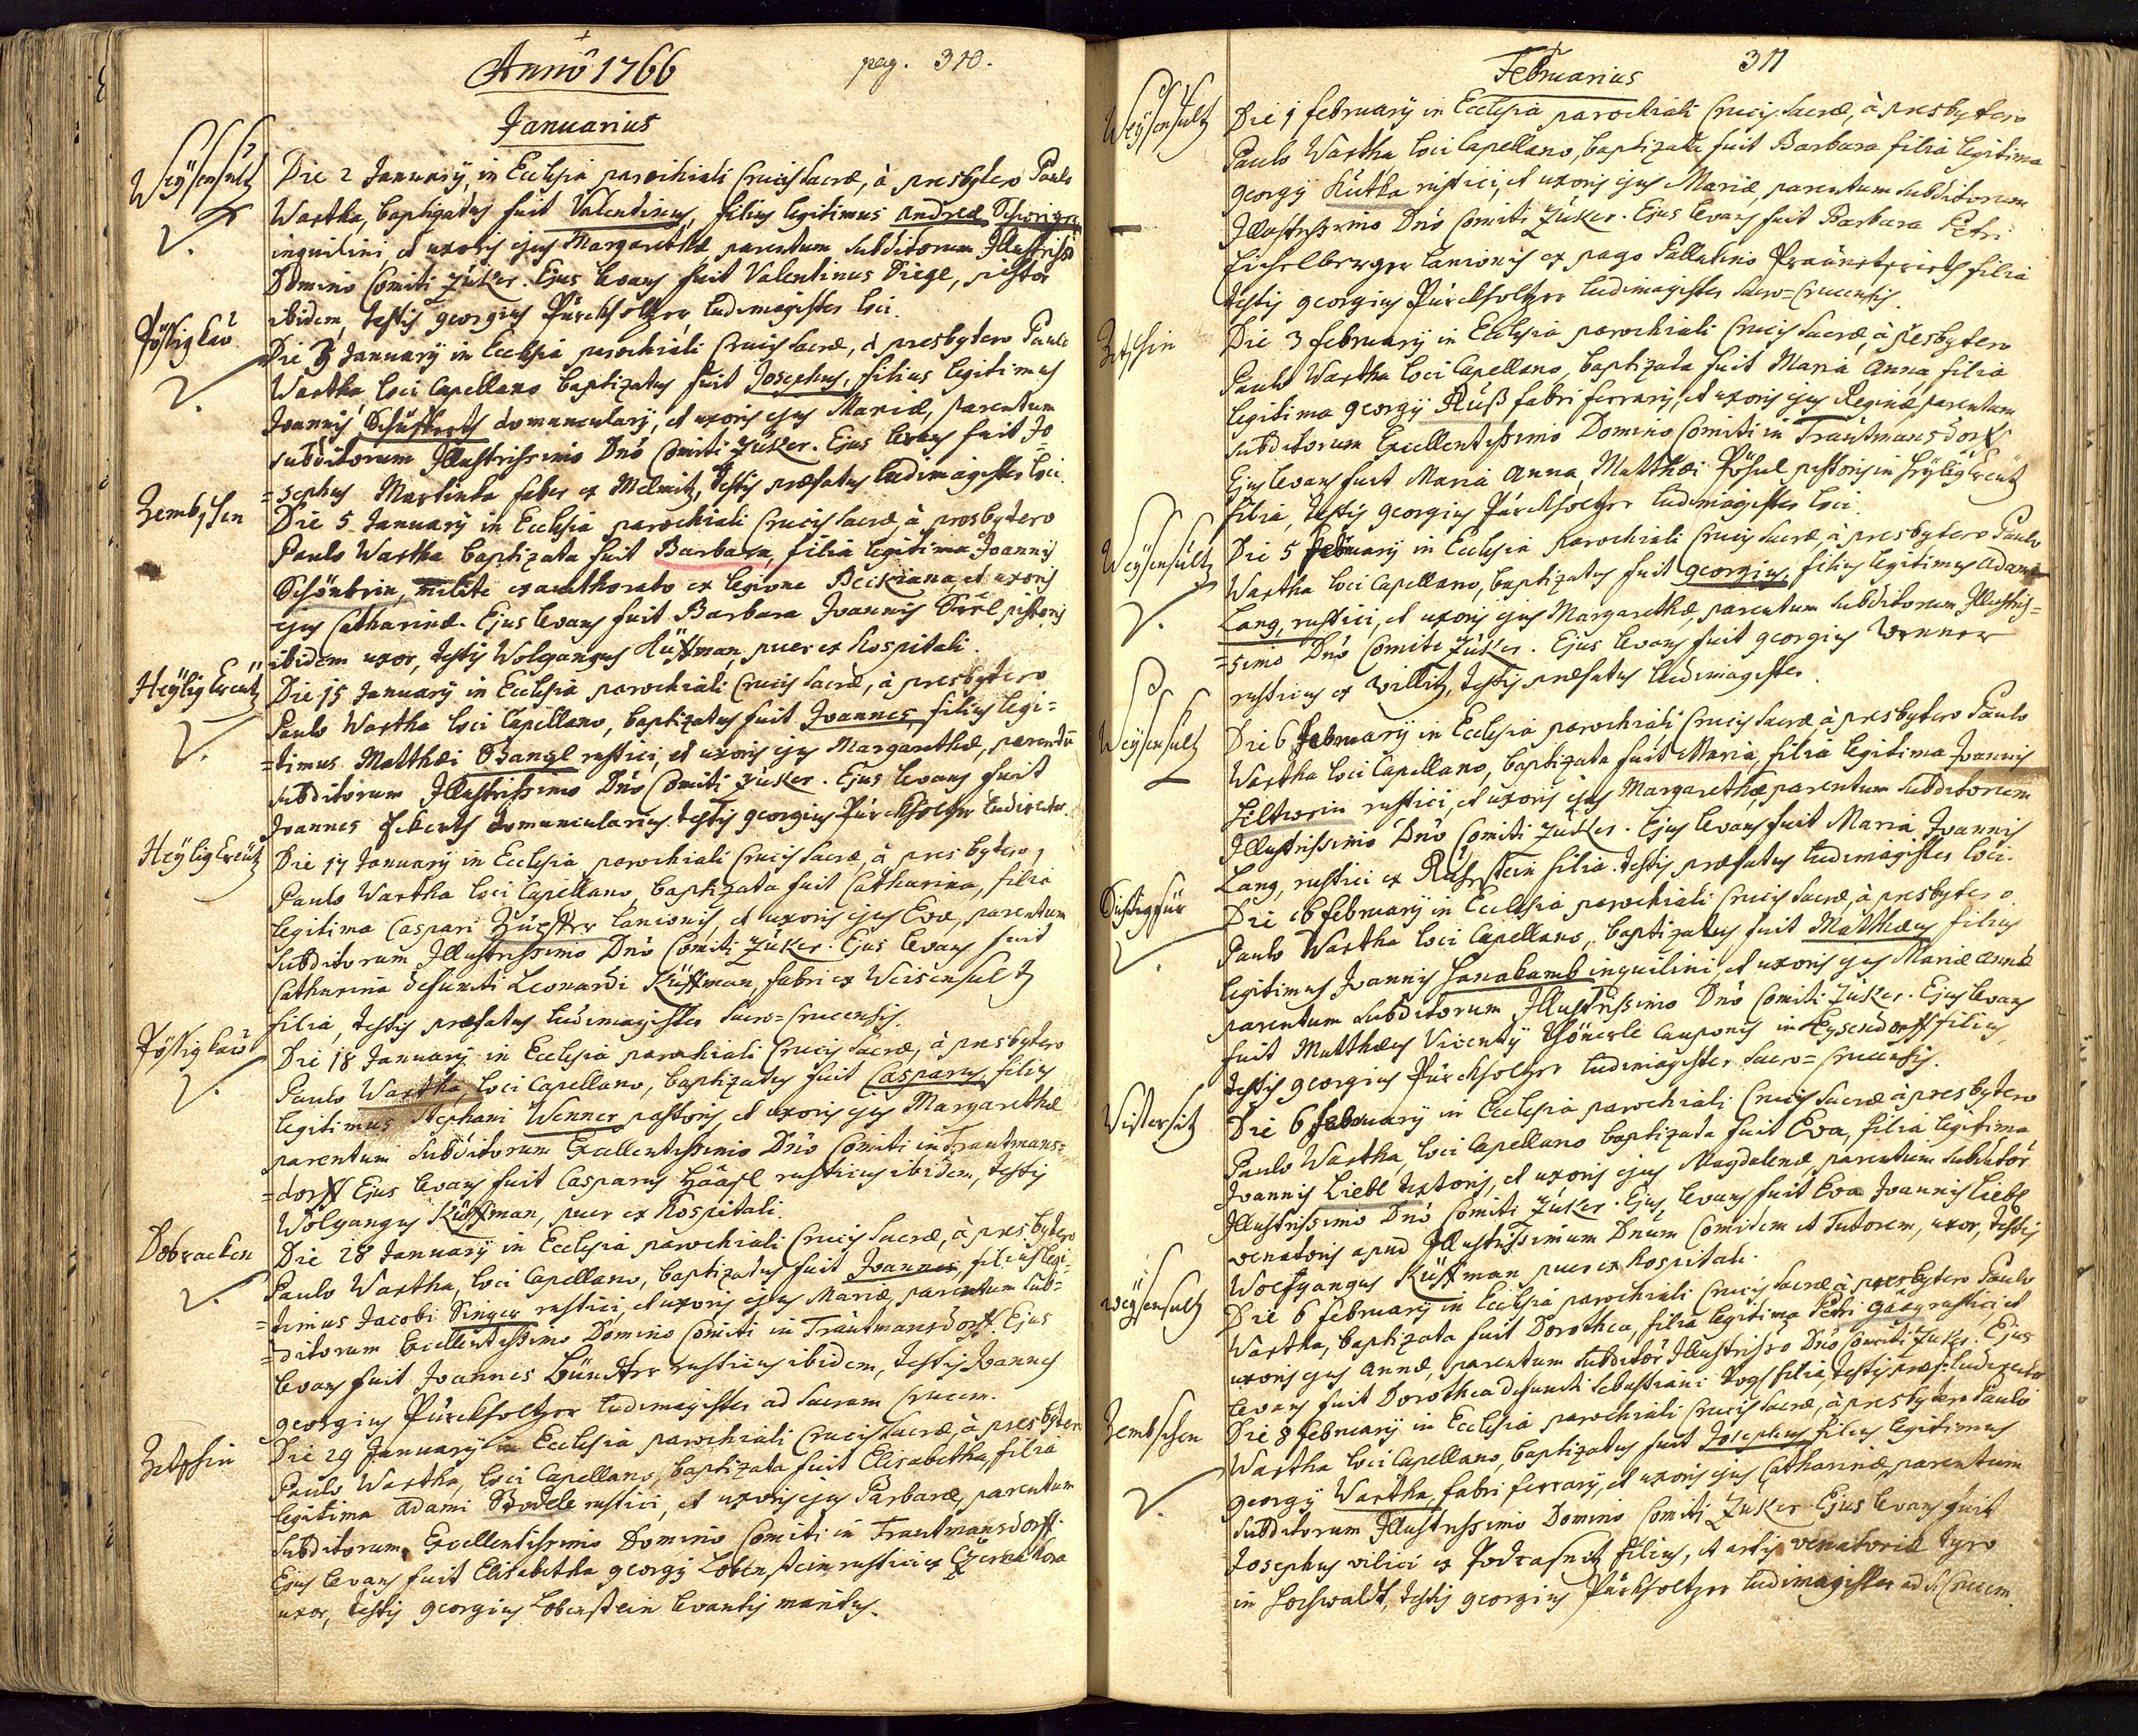 Anno 1766
pag. 310.
Januarius
Weysensultz
Die 2 Januarÿ, in Ecclesia parochiali Crucis Sacræ, à presbytero Paulo
Wartha, baptizatus fuit Valentinus, filius legitimus Andreæ
inquilini et uxoris ejus Margarethæ parentum subditorum Illustriss
Domino Comiti Züker. Ejus levans fuit Valentinus Siegl, pistor
ibidem, testis georgius Pürckholtzer ludimagister loci.
Pössigkau
Die 3 Januarÿ in Ecclesia parochiali Crucis Sacræ, à presbytero Paulo
Wartha, loci Capellano baptizatus fuit Josephus, filius legitimus
Joannis domuncularÿ, et uxoris ejus Mariæ, parentum
subditorum Illustrissimo Dnō Comiti Züker. Ejus levans fuit Jo
=sephus Martinka faber ex Melmitz, testis præfatus ludimagister loci.
Zembschen
Die 5 Januarÿ in Ecclesia parochiali Crucis Sacræ à presbytero
Paulo Wartha baptizata fuit Barbara, filia legitima Joannis
Schönbrin, milite exauthorato ex legione Beckiana, et uxoris
ejus Catharinæ. Ejus levans fuit Barbara Joannis pistoris
ibidem uxor, testis Wolgangus Küffman, puer ex hospitali.
Heÿlig Creütz
Die 15 Januarÿ in Ecclesia parochiali Crucis Sacræ, à presbytero
Paulo Wartha loci Capellano, baptizatus fuit Joannes, filius legi=
=timus Matthæi Bangl rustici, et uxoris ejus Margarethæ, parentū
subditorum Illustrissimo Dnō Comiti Züker. Ejus levans fuit
Joannes domuncularius. testis georgius Pürckholtzer
Heÿlig Creütz
Die 17 Januarÿ in Ecclesia parochiali Crucis Sacræ, à presbytero,
Paulo Wartha loci Capellano, baptizata fuit Catharina, filia
legitima Caspari lanionis, et uxoris ejus Evæ, parentum
subditorum Illustrissimo Dnō Comiti Züker. Ejus levans fuit
Catharina defuncti Leonardi Küffman, fabri ex Weisensultz
filia, testis præfatus ludimagister Sacro=Crucensis.
Pössigkau
Die 18 Januarÿ in Ecclesia parochiali Crucis Sacræ, à presbytero
Paulo Wartha, loci Capellano, baptizatus fuit Casparus, filius
legitimus Stephani Wenner pastoris, et uxoris ejus Margarethæ
parentum subditorum Excellentissimo Dnō Comiti in Trautmans=
=dorff Ejus levans fuit Casparus rusticus ibidem, testis
Wolgangus Küffman, puer ex hospitali.
Dobracken
Die 28 Januarÿ in Ecclesia parochiali Crucis Sacræ, à presbytero
Paulo Wartha, loci Capellano, baptizatus fuit Joannes, filius legi=
=timus Jacobi Singer rustici, et uxoris ejus Mariæ, parentum sub=
=ditorum Excellentissimo Domino Comiti in Trautmansdorff. Ejus
levans fuit Joannes rusticus ibidem, testis Joannes
georgius Pürckholtzer ludimagister ad Sacram Crucem.
Zetschin
Die 29 Januarÿ in Ecclesia parochiali Crucis Sacræ, à presbytero
Paulo Wartha, loci Capellano, baptizata fuit Elisabetha, filia
legitima Adami rustici, et uxoris ejus Barbaræ, parentum
subditorum Excellentissimo Domino Comiti in Trautmansdorff.
Ejus levans fuit Elisabetha georgÿ Lobenstein rustici ex
uxor, testis georgius Lobenstein levantis maritus.
Februarius
311
Weysensultz
Die 1 februarÿ in Ecclesia parochiali Crucis Sacræ, à presbytero
Paulo Wartha loci Capellano, baptizata fuit Barbara filia legitima
georgÿ Kutka rustici, et uxoris ejus Mariæ, parentum subditorum
Illustrissimo Dnō Comiti Züker. Ejus levans fuit Barbara Petri
Eichelberger lanionis ex pago Pallatino filia
testis georgius Pürckholtzer ludimagister Sacro=Crucensis.
Zetschin
Die 3 februarÿ in Ecclesia parochiali Crucis Sacræ, à presbytero
Paulo Wartha loci Capellano, baptizata fuit Maria Anna filia
legitima georgÿ fabri ferrarÿ, et uxoris ejus Reginæ, parentum
subditorum Excellentissimo Domino Comiti in Trautmansdorff.
Ejus levans fuit Maria Anna, Matthæi pistoris in Heÿlig Creütz
filia, testis georgius Pürckholtzer ludimagister loci.
Weysensultz
Die 5 februarÿ in Ecclesia parochiali Crucis Sacræ, à presbytero Paulo
Wartha loci Capellano, baptizatus fuit georgius, filius legitimus Adami
Lang, rustici, et uxoris ejus Margarethæ, parentum subditorum Illustris=
=simo Dnō Comiti Züker. Ejus levans fuit georgius Wenner
rusticus ex Willitz, testis præfatus ludimagister.
Weysensultz
Die 6 februarÿ in Ecclesia parochiali Crucis Sacræ à presbytero Paulo
Wartha loci Capellano, baptizata fuit Maria, filia legitima Joannis
rustici, et uxoris ejus Margarethæ, parentum subditorum
Illustrissimo Dnō Comiti Züker. Ejus levans fuit Maria Joannis
Lang, rustici ex filia. testis præfatus ludimagister loci.
Die 6 februarÿ in Ecclesia parochiali Crucis Sacræ, à presbytero
Paulo Wartha loci Capellano, baptizatus fuit Matthæus filius
legitimus Joannis Hanakamb inquilini, et uxoris ejus Mariæ Annæ
parentum subditorum Illustrissimo Dnō Comiti Züker. Ejus levans
fuit Matthæus Vicentÿ cauponis in Eysendorff filius,
testis georgius Pürckholtzer ludimagister Sacro=Crucensis.
Wistersitz
Die 6 februarÿ in Ecclesia parochiali Crucis Sacræ à presbytero
Paulo Wartha loci Capellano baptizata fuit Eva, filia legitima
Joannis Liebl textoris, et uxoris ejus Magdalenæ parentum subditor
Illustrissimo Dnō Comiti Züker. Ejus levans fuit Eva Joannis Liebl
venatoris apud Illustrissimum Dnum Comitem et Tutorem, uxor, testis
Wolfgangus Küffman puer ex hospitali.
Weysensultz
Die 6 februarÿ in Ecclesia parochiali Crucis Sacræ à presbytero Paulo
Wartha, baptizata fuit Dorothea, filia legitima Petri rustici, et
uxoris ejus Annæ, parentum subditor Illustrissimo Dnō Comiti Züker. Ejus
levans fuit Dorothea defuncti Sebastiani filia, testis
Zembschen
Die 8 februarÿ in Ecclesia parochiali Crucis Sacræ, à presbytero Paulo
Wartha loci Capellano, baptizatus fuit Josephus filius legitimus
georgÿ Wartha, fabri ferrarÿ, et uxoris ejus Catharinæ parentum
subditorum Illustrissimo Domino Comiti Züker. Ejus levans fuit
Josephus vilici ex filius, et artis venatoriæ tyro
in Hochwaldt, testis georgius Pürckholtzer ludimagister ad S. Crucem.